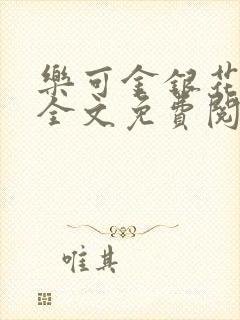 樂可金銀花
全文免費閱
唯其